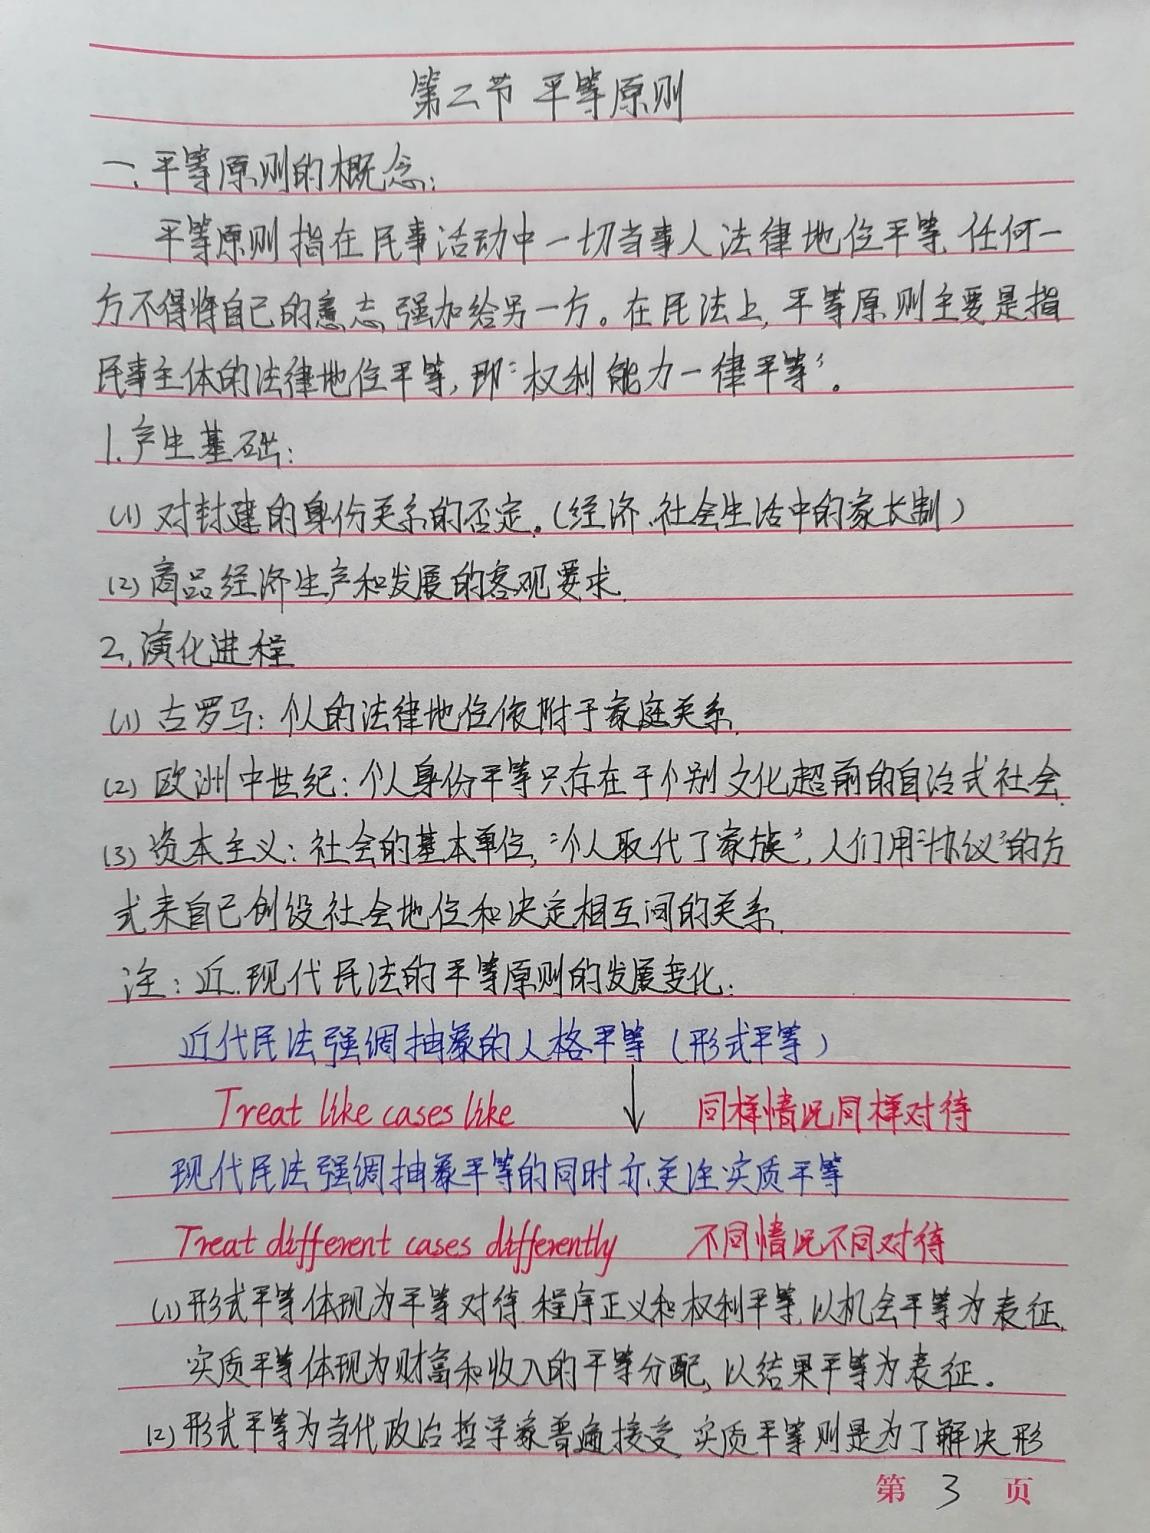 第二节 平等原则
一、平等原则的概念：
平等原则指在民事活动中一切当事人法律地位平等，任何一
方不得将自己的意志强加给另一方。在民法上，平等原则主要是指
民事主体的法律地位平等，即“权利能力一律平等”。
1.产生基础：
(1) 对封建的身份关系的否定。(经济、社会生活中的家长制)
(2) 商品经济生产和发展的客观要求.
2.演化进程
(1) 古罗马：个人的法律地位依附于家庭关系.
(2) 欧洲中世纪：个人身份平等只存在于个别文化超前的自治式社会.
(3) 资本主义：社会的基本单位，“个人取代了家族”，人们用“协议”的方
式来自己创设社会地位和决定相互间的关系.
注：近、现代民法的平等原则的发展变化：
近代民法强调抽象的人格平等（形式平等）
Treat like cases like 同样情况同样对待
现代民法强调抽象平等的同时亦关注实质平等
Treat different cases differently 不同情况不同对待
(1) 形式平等体现为平等对待、程序正义和权利平等，以机会平等为表征.
实质平等体现为财富和收入的平等分配，以结果平等为表征。
(2) 形式平等为当代政治哲学家普遍接受，实质平等则是为了解决形
第 3 页